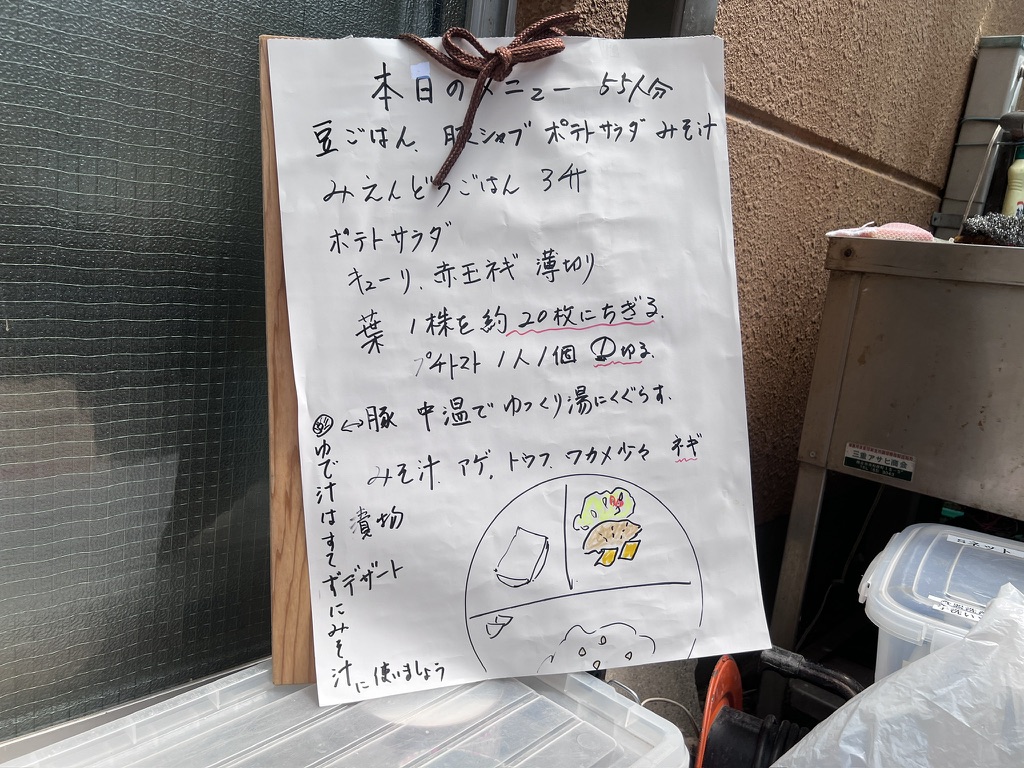 本日のメニュー 55人分
豆ごはん、豚シャブ ポテトサラダ みそ汁
みえんどうごはん 3升
ポテトサラダ
キューリ、赤玉ネギ 薄切り
葉 1株を約20枚にちぎる。
プチトマト 1人1個 切る。
↔豚 中温でゆっくり湯にくぐらす。
みそ汁 アゲ、トウフ、ワカメ少々 ネギ
漬物
デザート
ゆで汁はすてずにみそ汁に使いましょう
三重アサヒ商会